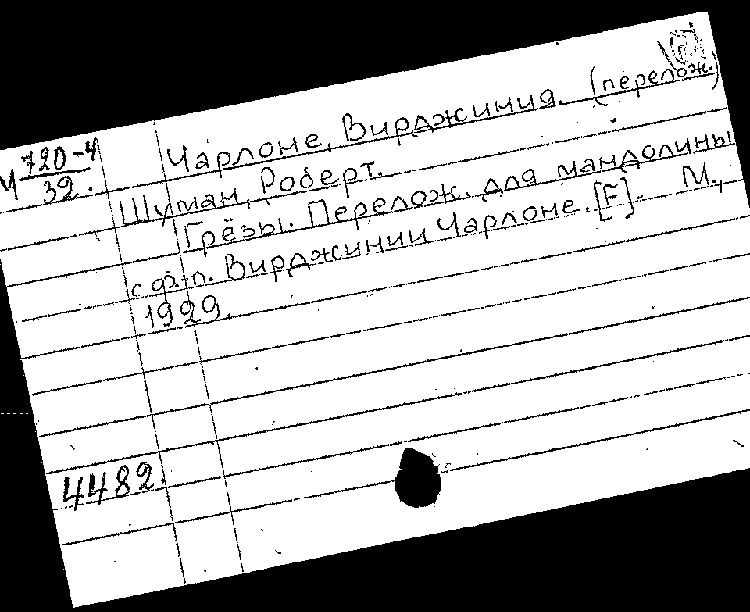 Чарлоне, Вирджиния. (перелож.)
М 720-4
32.
Шуман, Роберт.
Грёзы. Перелож. для мандолины
с ф-п. Вирджинии Чарлоне. [F]. М.,
1929.
4482.